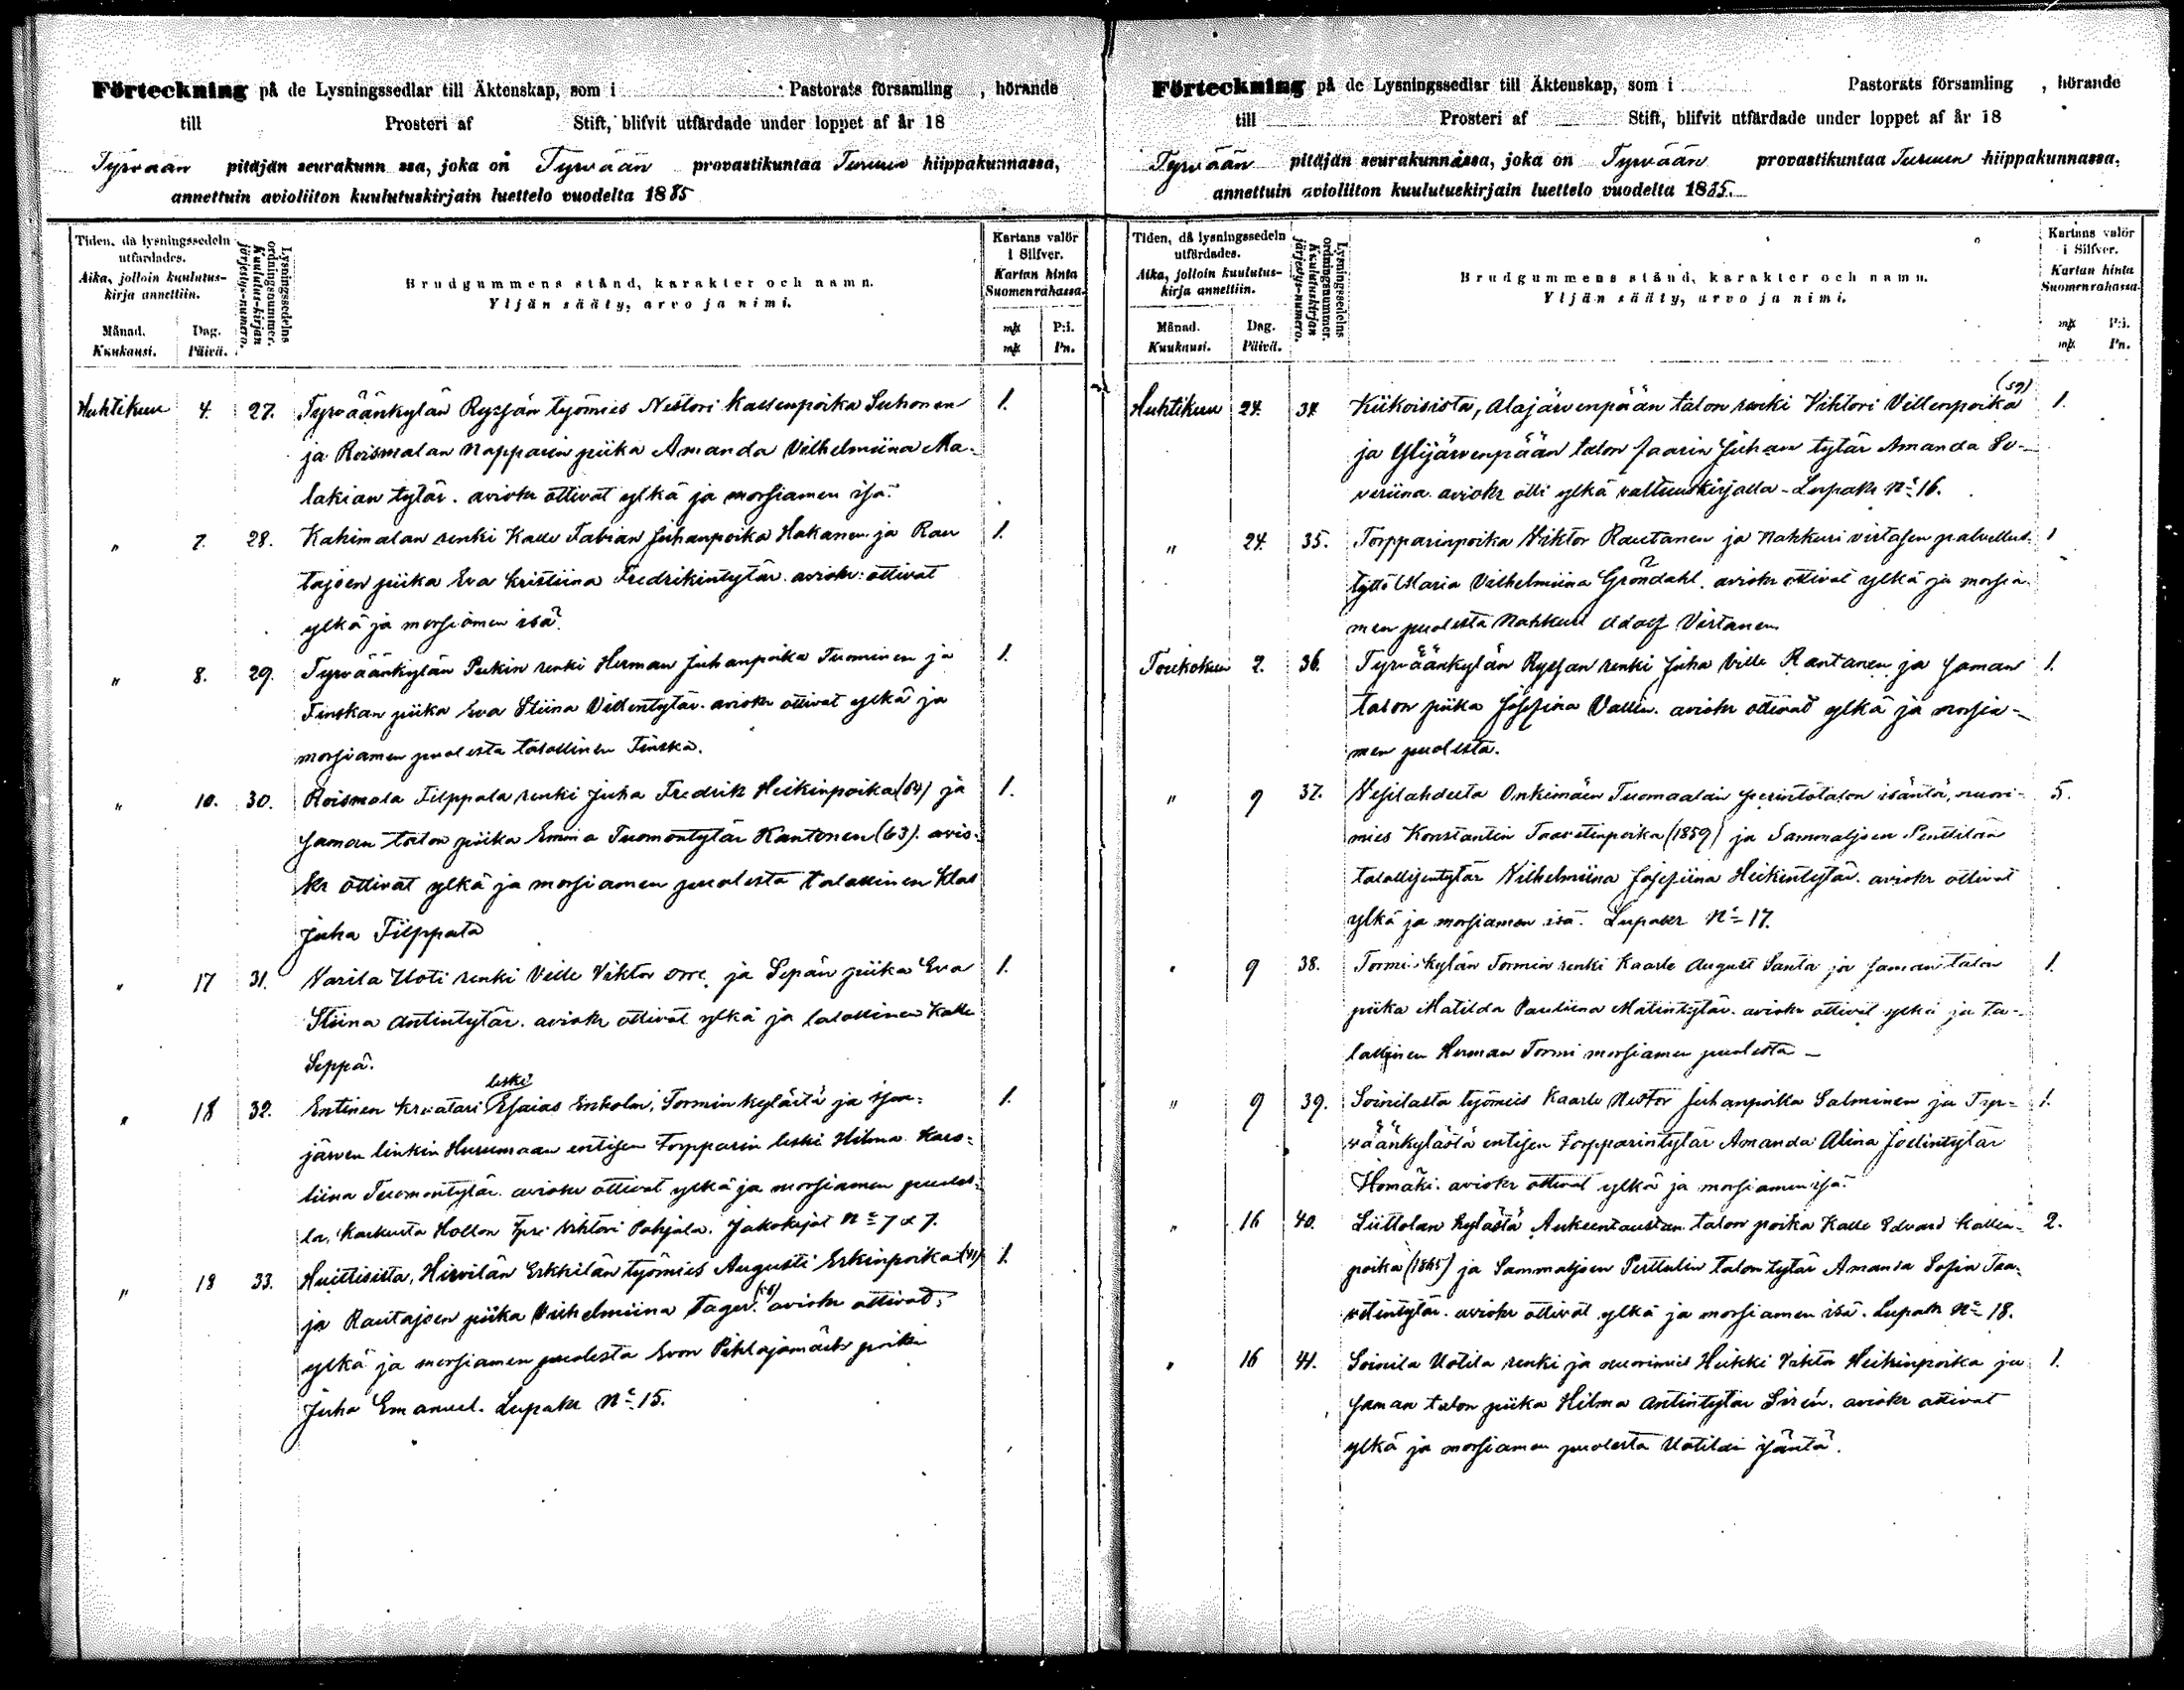 Förteckning på de Lysningssedlar till Äktenskap, som i Pastorats församling , hörande
till Prosteri af Stift, blifvit utfärdade under loppet af år 18
Tyrvään pitäjän seurakunnassa, joka on Tyrvään provastikuntaa Turun hiippakunnassa,
annettuin avioliiton kuulutuskirjain luettelo vuodelta 1885
Tiden, då lysningssedeln utfärdades.
Aika, jolloin kuulutus-kirja annettiin.
Månad. Kuukausi.
Dag. Päivä.
Lysningssedelns ordningsnummer.
Kuulutus-kirjan järjestys-numero.
Brudgummens stånd, karakter och namn.
Yljän sääty, arvo ja nimi.
Kartans valör i Silfver.
Kartan hinta Suomen rahassa.
mk P:i.
mk Pn.
Huhtikuu 4. 27. Tyrväänkylän Ryssän työmies Nestori Kallenpoika Suhonen 1.
ja Roismalan Napparin piika Amanda Vilhelmiina Ma-
lakian tytär. aviokr ottivat ylkä ja morsiamen isä.
" 7. 28. Kahimalan renki Kalle Fabian Juhanpoika Hakanen ja Rau 1.
tajoen piika Eva Kristiina Fredrikintytär. aviokr: ottivat
ylkä ja morsiamen isä.
" 8. 29. Tyrväänkylän Pukin renki Herman Juhanpoika Tuominen ja 1.
Finskan piika Eva Stiina Villentytär. aviokr ottivat ylkä ja
morsiamen puolesta talollinen Finska.
" 10. 30. Roismala Filppala renki Juha Fredrik Heikinpoika (64) ja 1.
saman talon piika Emma Tuomontytär Kantonen (63). avio-
kr ottivat ylkä ja morsiamen puolesta talollinen Klas
Juha Filppala
" 17 31. Varila Uoti renki Ville Viktor Orre, ja Sepän piika Eva 1.
Stiina Antintytär. aviokr ottivat ylkä ja talollinen Kalle
Seppä.
leski
" 18 32. Entinen kraatari Esaias Enholm, Tormin kylästä ja 1.
järven linkin Huremaan entisen torpparin leski Hilma Karo-
liina Tuomontytär. aviokr ottivat ylkä ja morsiamen puoles-
ta, Karkusta Hollon Viktori Pohjala. Jakokirjat No 7 & 7.
" 18 33. Huittisista, Hirvilän Erkkilän työmies Augusti Erkinpoika (41) 1.
ja Rautajoen piika Vilhelmiina Fager (58) aviokr ottivat,
ylkä ja morsiamen puolesta Evon Pihlajamäen poika
Juha Emanuel. Lupakr No 15.
Förteckning på de Lysningssedlar till Äktenskap, som i Pastorats församling , hörande
till Prosteri af Stift, blifvit utfärdade under loppet af år 18
Tyrvään pitäjän seurakunnassa, joka on Tyrvään provastikuntaa Turun hiippakunnassa,
annettuin avioliiton kuulutuskirjain luettelo vuodelta 1885.
Tiden, då lysningssedeln utfärdades.
Aika, jolloin kuulutus-kirja annettiin.
Månad. Kuukausi.
Dag. Päivä.
Lysningssedelns ordningsnummer.
Kuulutuskirjan järjestys-numero.
Brudgummens stånd, karakter och namn.
Yljän sääty, arvo ja nimi.
Kartans valör i Silfver.
Kartan hinta Suomen rahassa.
mk P:i.
mk Pn.
(59)
Huhtikuu 24. 34. Kiikoisista, Alajärvenpään talon renki Viktori Villenpoika 1.
ja Ylijärvenpään talon faarin Juhan tytär Amanda Se-
veriina aviokr otti ylkä valtuuskirjalla - Lupakr No 16.
" 24. 35. Torpparinpoika Viktor Rautanen ja Nahkuri Virtasen palvellus- 1
tyttö Maria Vilhelmiina Gröndahl. aviokr ottivat ylkä ja morsia-
men puolesta Nahkuri Adolf Virtanen.
Toukokuu 2. 36. Tyrväänkylän Ryssän renki Juha Ville Rantanen ja saman 1.
talon piika Josefina Vallin. aviokr ottivat ylkä ja morsia-
men puolesta.
" 9 37. Vesilahdelta Onkemäen Tuomaalan perintötalon isäntä, nuori- 5.
mies Konstantin Taavetinpoika (1859) ja Sammaljoen Penttilän
talollisentytär Vilhelmiina Josefiina Heikintytär. aviokr ottivat
ylkä ja morsiamen isä. Lupakr No 17.
" 9 38. Tormi kylän Tormin renki Kaarle August Santa ja saman talon 1.
piika Matilda Pauliina Matintytär. aviokr ottivat ylkä ja ta-
lollinen Herman Tormi morsiamen puolesta -
" 9 39. Soinilasta työmies Kaarle Nestor Juhanpoika Salminen ja Tyr- 1.
väänkylästä entisen torpparintytär Amanda Alina Joelintytär
Homäki. aviokr ottivat ylkä ja morsiamen isä.
" 16 40. Liittolan kylästä Aukeentaustan talon poika Kalle Edvard Kallen- 2.
poika (1865) ja Sammaljoen Perttulin talon tytär Amanda Sofia Taa-
vetintytär. aviokr ottivat ylkä ja morsiamen isä. Lupakr No 18.
" 16 41. Soinila Uotila renki ja nuorimies Heikki Vihta Heikinpoika ja 1.
saman talon piika Hilma Antintytär Sirén. aviokr ottivat
ylkä ja morsiamen puolesta Uotilan isäntä.